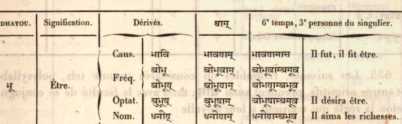 DHATOU. Signification. Dérivés. धाम् 6ᵉ temps, 3ᵉ personne du singulier.
Caus. भावि भावयाम् भावयामास Il fut, il fit être.
Fréq. बोभू बोभूवाम् बोभूवांबभूव
भू Être. बोभूय् बोभूयाम् बोभूयाम्बभूव
Optat. बुभूष् बुभूषाम् बुभूषाम्बभूव Il désira être.
Nom. Il aima les richesses.